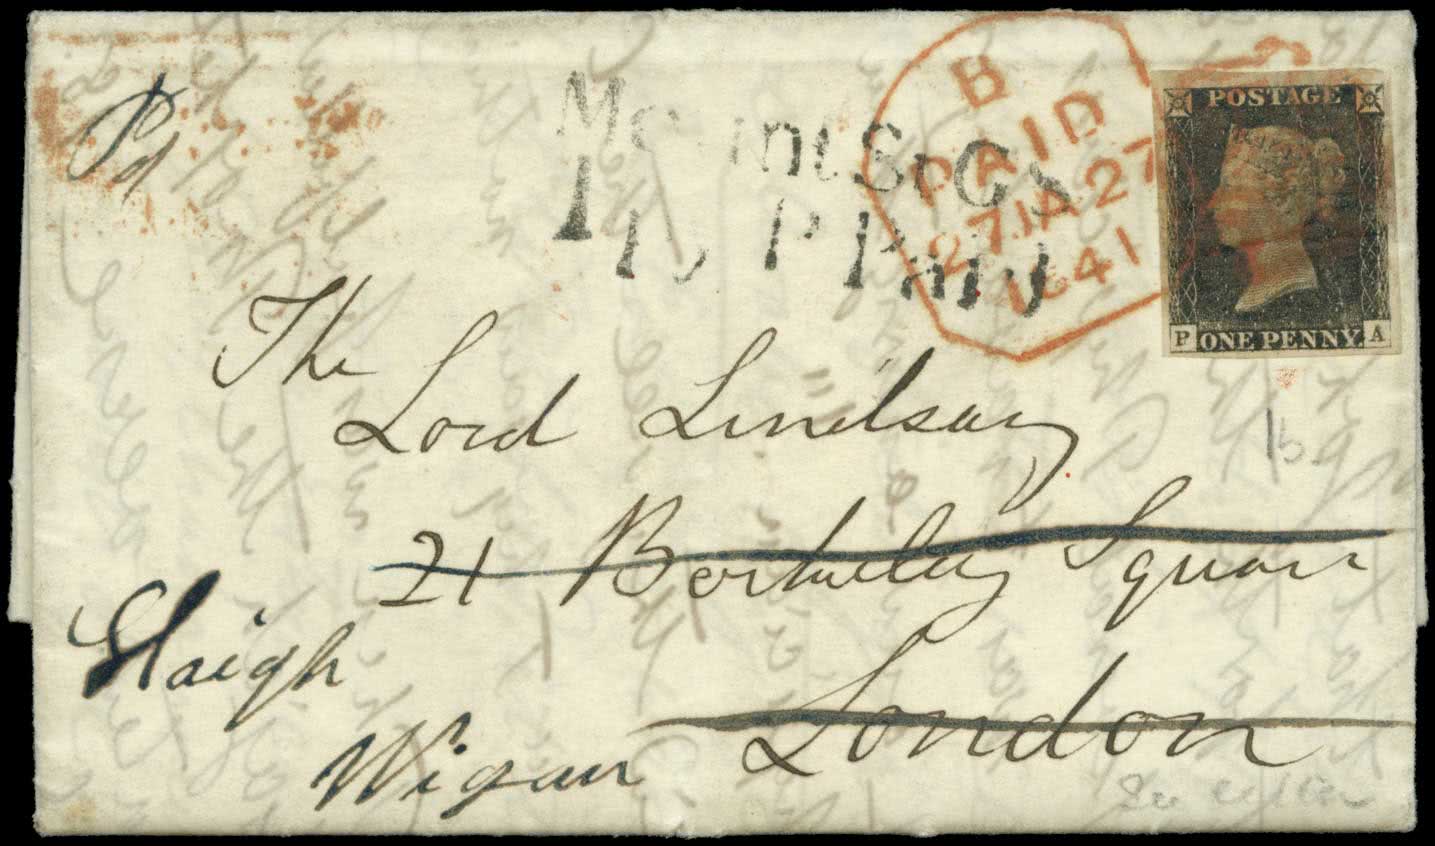 Pd
B
PAID
27 JA 27
1841
POSTAGE
P ONE PENNY A
Mount St Gs
1 Py P Paid
The
Lord Lindsay
21 Berkeley Square
London
Haigh
Wigan